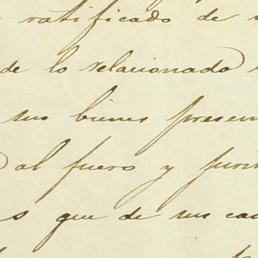 ratificado de
de lo relacionado
sus bienes presen
al fuero y juris
s que de sus cau